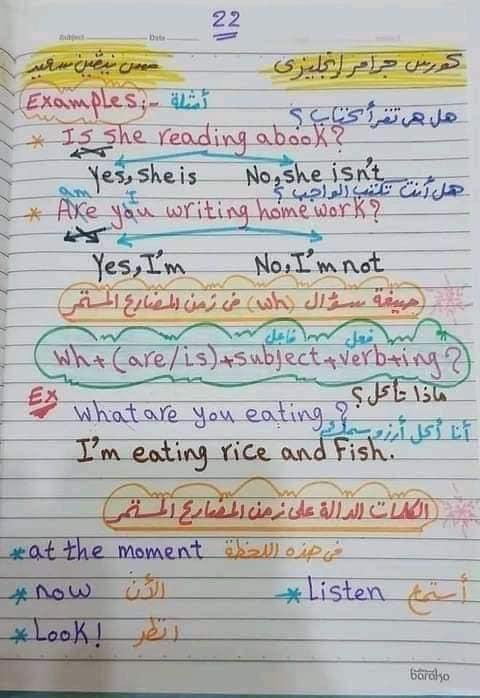 22
Subject Date
كورس جرامر إنجليزي
مس نيڤين سعيد
Examples:- أمثلة
هل هى تقرأ كتاب ؟
* Is she reading a book?
Yes, she is No, she isn't
هل أنت تكتب الواجب ؟
am I
* Are you writing home work?
Yes, I'm No, I'm not
صيغة سؤال (wh) فى زمن المضارع المستمر
فاعل فعل
wh + (are/is) + subject + verb + ing ?
ماذا تأكل ؟
Ex What are you eating ?
أنا أكل أرز وسمك
I'm eating rice and Fish.
الكلمات الدالة على زمن المضارع المستمر
* at the moment فى هذه اللحظة
* now الأن * Listen أستمع
* Look! انظر
barako